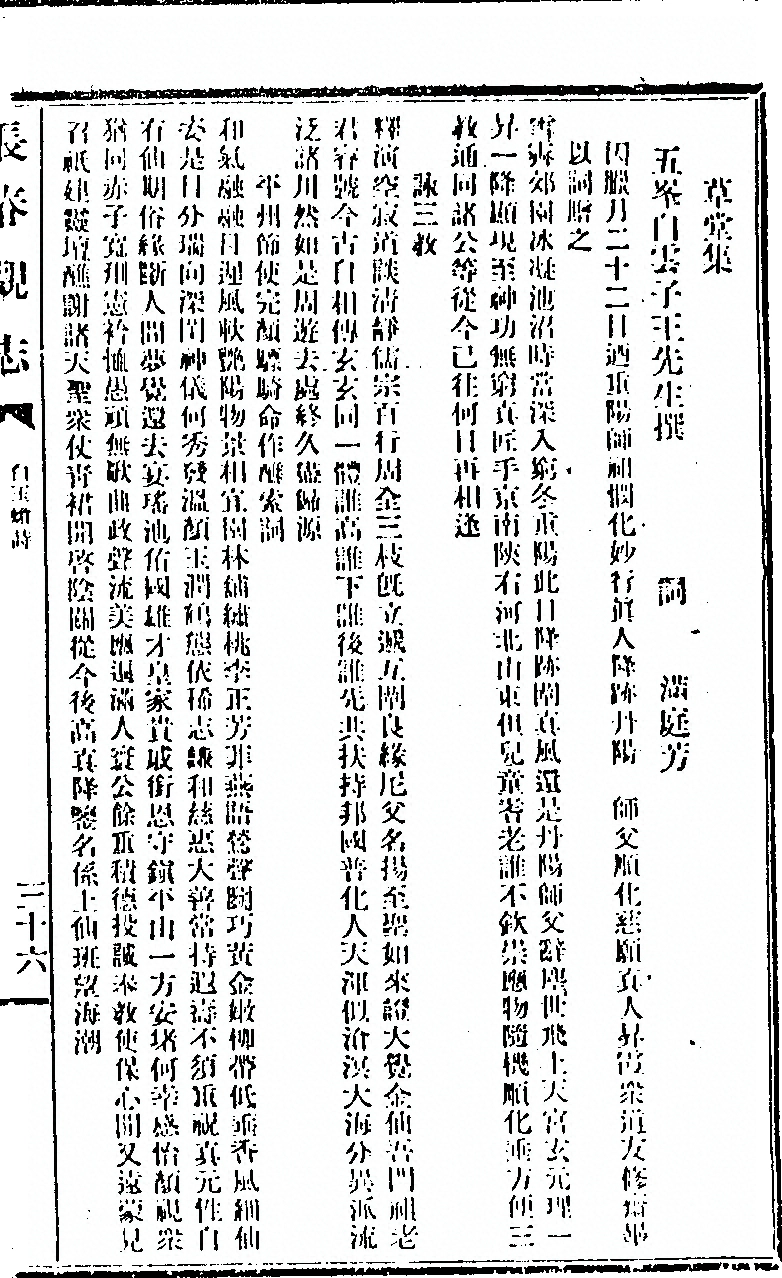 草堂集
五峯白雲子王先生撰
詞 滿庭芳
因臘月二十二日迺重陽師祖憫化妙行眞人降跡丹陽 師父順化慈願真人昇霞衆道友修齋郵
以詞贈之
雪霽郊園冰凝池沼時當深入窮冬重陽此日降跡闡真風還是丹陽師父辭塵世飛上天宮玄元理一
昇一降顯現至神功無窮真匠手京南陝右河北山東但兒童耆老誰不欽崇應物隨機順化垂方便三
教通同諸公等從今已往何日再相逢
詠三教
釋演空寂道談清靜儒宗百行周全三枝既立遞互闡良緣尼父名揚至聖如來證大覺金仙吾門祖老
君尊號今古自相傳玄玄同一體誰高誰下誰後誰先共扶持邦國普化人天渾似滄溟大海分異派流
泛諸川然如是周遊去處終久還歸源
平州節使完顏驃騎命作醮索詞
和氣融融日遲風軟艷陽物景相宜園林鋪繡桃李正芳菲燕語鶯聲鬪巧黃金嫩柳帶低垂香風細仙
去是日分瑞向深閨神儀何秀發溫顏玉潤鶴髮依稀志謙和慈惠大善當持遐壽不須重祝真元性自
有仙期俗緣斷人間夢覺還去宴瑤池佑國雄才皇家貴戚銜恩守鎮平山一方安堵何幸感怡顏視衆
猶同赤子寬刑憲衿恤愚頑無欺曲政聲流美應遍滿人寰公餘重積德投誠奉教使保心閒又遠蒙見
召祇建靈壇醮謝諸天聖衆仗青裙開啓陰關從今後高真降鑒名係上仙班望海潮
長春觀志
白玉蟾詩
三十六